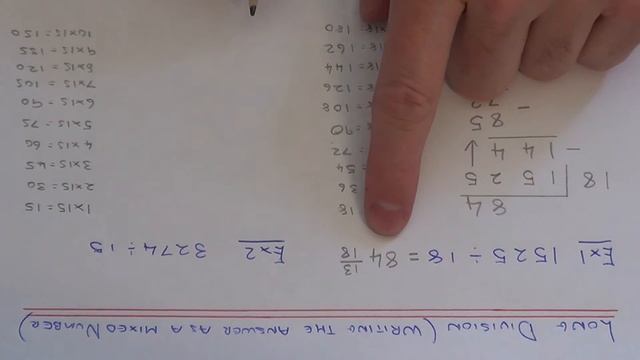 LONG DIVISION (WRITING THE ANSWER AS A MIXED NUMBER)
Ex1 1525 ÷ 18 = 84 13/18
Ex2 3274 ÷ 15
84
18 1525
- 144 ↓
85
- 72
18
36
54
= 72
= 90
= 108
= 126
= 144
= 162
= 180
1x15 = 15
2x15 = 30
3x15 = 45
4x15 = 60
5x15 = 75
6x15 = 90
7x15 = 105
8x15 = 120
9x15 = 135
10x15 = 150